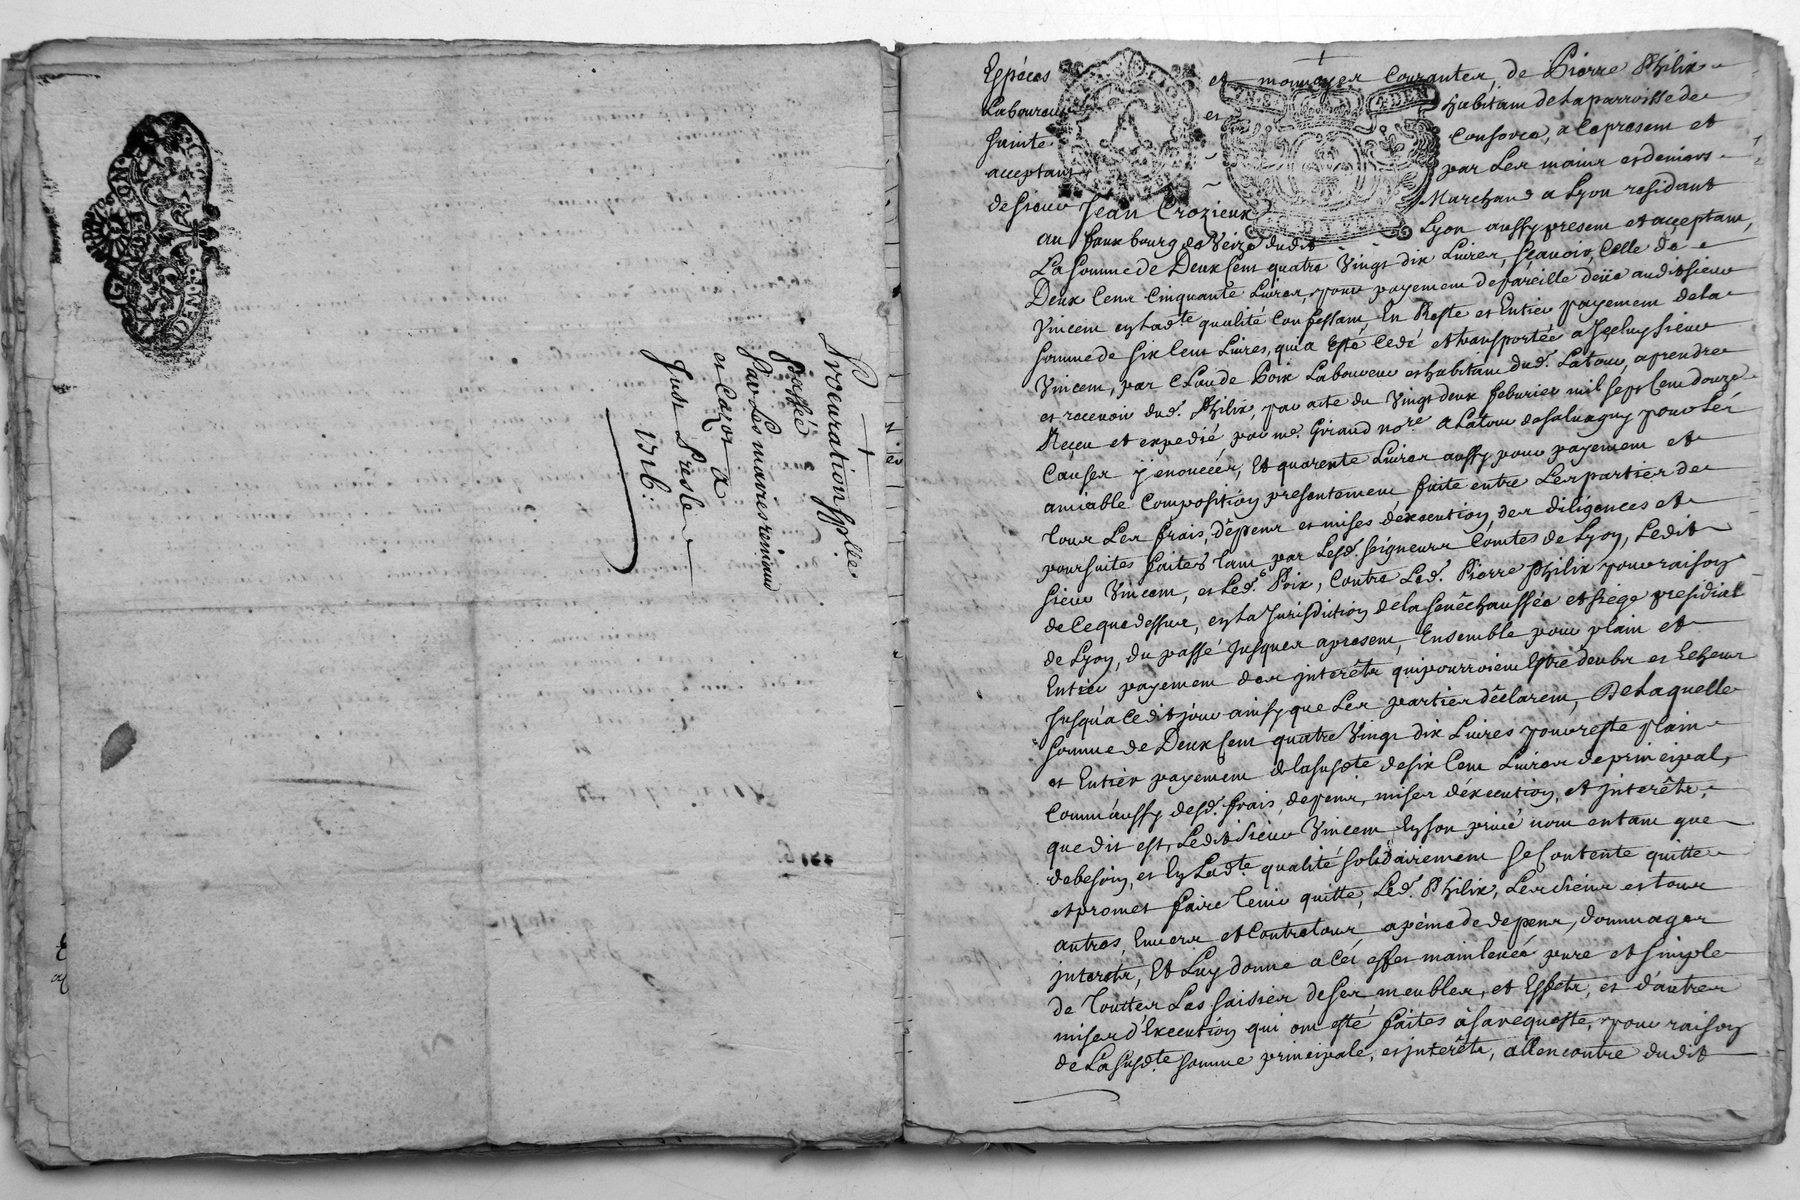 Procuration spp.lle
Passé
Par Les mariés reniaud
et Cazot a
Just Presle
1716:
Espéces et monnoyes Courantes, de Pierre Philix
Laboureur et habitant de la parroisse de
Sainte Consorce, a Ce present et
acceptant par Les mains et deniers
de sieur Jean Crozieux Marchand a Lyon residant
au faux bourg de Veize dudit Lyon aussy present et acceptant,
La somme de Deux Cent quatre Vingt dix Livres, sçauoir Celle de
Deux Cent Cinquante Livres, pour payement de pareille deüe audit sieur
Vincent en lad.te qualité Confessant En Reste et Entier payement de la
somme de six Cent Livres, qui a Esté Cedé et transportée a Jceluy sieur
Vincent, par Claude Poix Laboureur et habitant dud. Latour, a prendre
et receuoir dud. Philix, par acte du Vingt deux feburier mil sept Cent douze
Receu et expedié par me. Giraud no.re a Latour de saluagny pour Les
Causes y enoncées, Et quarente Livres aussy pour payement et
amiable Composition presentement faite entre Les parties de
tous Les frais, dépens et mises d'execution, des diligences et
poursuites faites tant par Lesd. seigneurs Comtes de Lyon, Ledit
sieur Vincent, et Led. Poix, Contre Led. Pierre Philix pour raison
de Ce que dessus, en La Jurisdiction de la senéchaussée et siege presidial
de Lyon, du passé Jusques a present, Ensemble pour plain et
Entier payement des jnteréts qui pourroient Estre deubs et Echeus
Jusqu'a Cedit jour ainsy que Les parties déclarent, De Laquelle
somme de Deux Cent quatre Vingt dix Livres pour reste plain
et Entier payement de la susd.te de six Cent Livres de principal,
Comm'aussy desd. frais, depens, mises d'éxecution, et jnteréts,
que dit est, Ledit sieur Vincent En son priué nom en tant que
de besoin, et En Lad.te qualité solidairement se Contente quitte
et promet faire tenir quitte, Led. Philix, Les siens et tous
autres, Enuers et Contre tous, a péme de depens, dommages
jnterets, Et Luy donne a Cet effet mainleuée pure et simple
de Touttes Les saisies de ses meubles, et Effets, et d'autres
mises d'Execution qui ont esté faites à sa requeste, pour raison
de La susd.te somme principale, et jnteréts, a l'encontre dudit